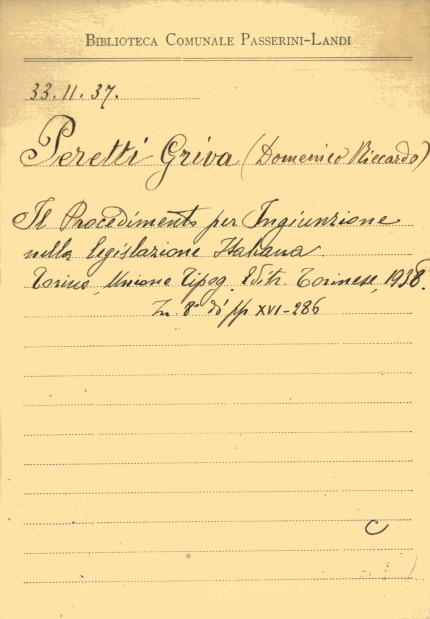 BIBLIOTECA COMUNALE PASSERINI-LANDI
33.11.37.
Peretti Griva (Domenico Riccardo)
Il Procedimento per Ingiunzione
nella legislazione Italiana.
Torino, Unione Tipog. Editr. Torinese, 1938.
In 8° pp XVI-286
C